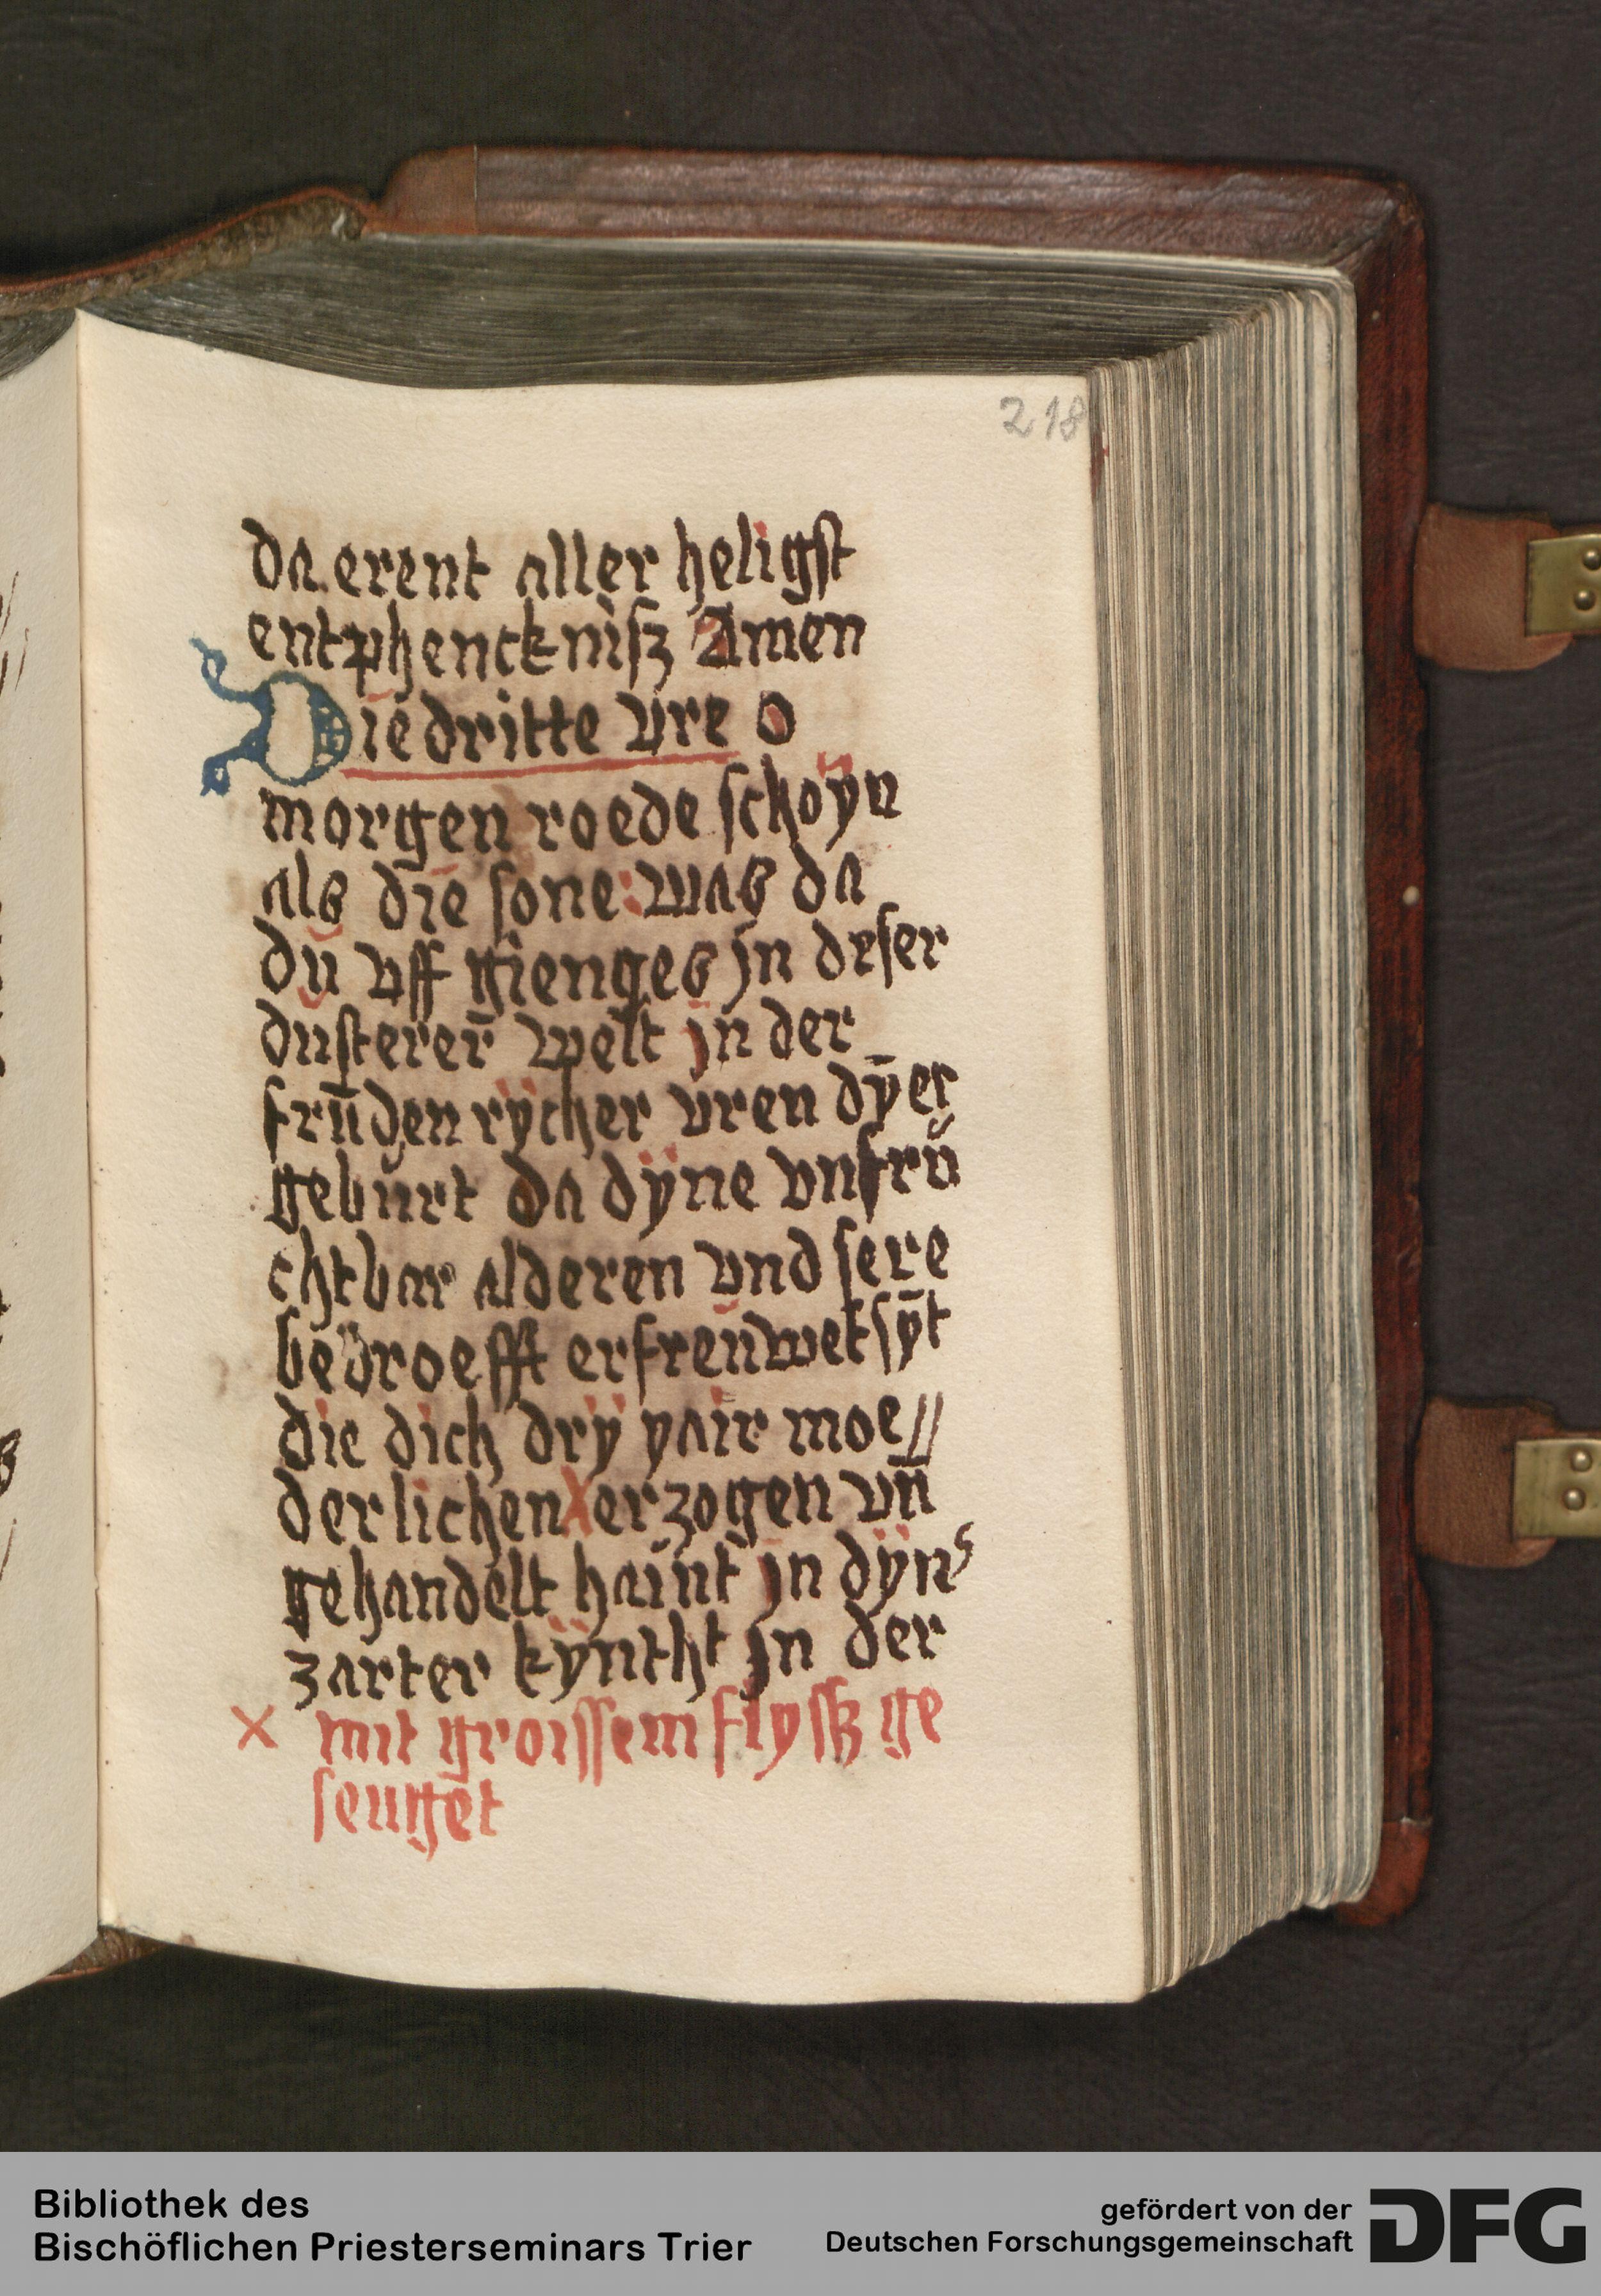 218
da erent aller heligſt
entphenckniſz Amen
Die dritte vre O
morgen roede ſchoÿn
als die ſone : was da
dŭ vff gienges jn deſer
dŭſterer̄ welt jn der
frūden rÿcher vren dȳer
gebŭrt da dÿne vnfrŭ
chtbar alderen vnd ſere
bedroefft erfreŭwet ſȳt
die dich drÿ yair moe//
derlichen X erzogen vn̄
gehandelt haint jn dÿnˢ
zarter kÿntht jn der
X mit groiſſem flyſſz ge
ſeuget
Bibliothek des
Bischöflichen Priesterseminars Trier
gefördert von der
Deutschen Forschungsgemeinschaft
DFG